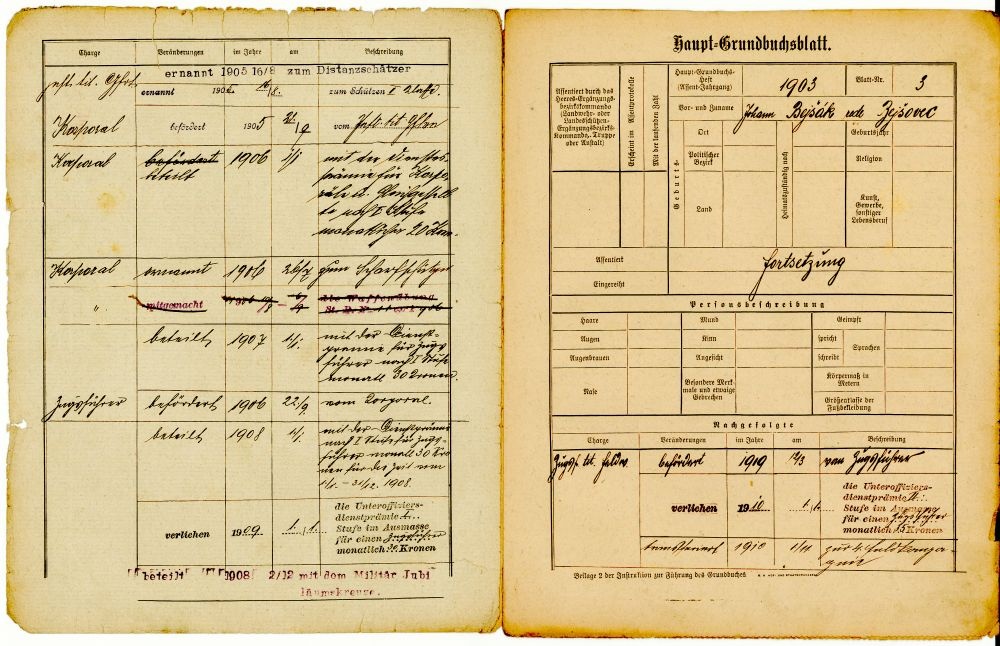 Charge Veränderungen im Jahre am Beschreibung
ernannt 1905 16/8 zum Distanzschätzer
ernannt zum Schützen I Classe.
Korporal befördert 1905 vom
Korporal befördert 1906 1/1 mit der Dienstes-
beteilt prämie für Korpo-
rale
nach I Stufe
20 Kron.
Korporal ernannt 1906 zum Scharfschützen
" mitgemacht die Waffenübung
beteilt 1907 1/1. mit der Dienst-
prämie für Zugs-
führer nach I Stufe
monatl 30 Kronen.
Zugsführer befördert 1906 22/9 vom Corporal.
beteilt 1908 1/1. mit der Dienstprämie
nach I Stufe für Zugs-
führer monatl 30 Kro
nen für die Zeit vom
1/1. – 31/12. 1908.
verliehen 1909 1. 1. die Unteroffiziers-
dienstprämie
Stufe im Ausmasse
für einen Zugsführer
monatlich Kronen
beteilt 1908 2/12 mit dem Militär Jubi
läumskreuze.
Haupt-Grundbuchsblatt.
Assentiert durch das
Heeres-Ergänzungs-
bezirkskommando
(Landwehr- oder
Landesschützen-
Ergänzungsbezirks-
Kommando, Truppe
oder Anstalt)
Erscheint im Assentprotokolle
Mit der laufenden Zahl
Haupt-Grundbuchs-
Heft
(Assent-Jahrgang)
1903
Blatt-Nr. 3
Vor- und Zuname Johann Bejšák recte Zejšovec
Geburts-
Ort
Politischer
Bezirk
Land
Heimatszuständig nach
Geburtsjahr
Religion
Kunst,
Gewerbe,
sonstiger
Lebensberuf
Assentiert Fortsetzung
Eingereiht
Personsbeschreibung
Haare Mund Geimpft
Augen Kinn spricht Sprachen
Augenbrauen Angesicht schreibt
Nase
Besondere Merk-
male und etwaige
Gebrechen
Körpermaß in
Metern
Größenklasse der
Fußbekleidung
Nachgefolgte
Charge Veränderungen im Jahre am Beschreibung
Zugsf. tit. Feldw. befördert vom Zugsführer
verliehen 1910 1. 1. die Unteroffiziers-
dienstprämie II.
Stufe im Ausmasse
für einen Zugsführer
monatlich Kronen
transferiert 1910 zur 4. Feldkompa-
gnie
Beilage 2 der Instruktion zur Führung des Grundbuches